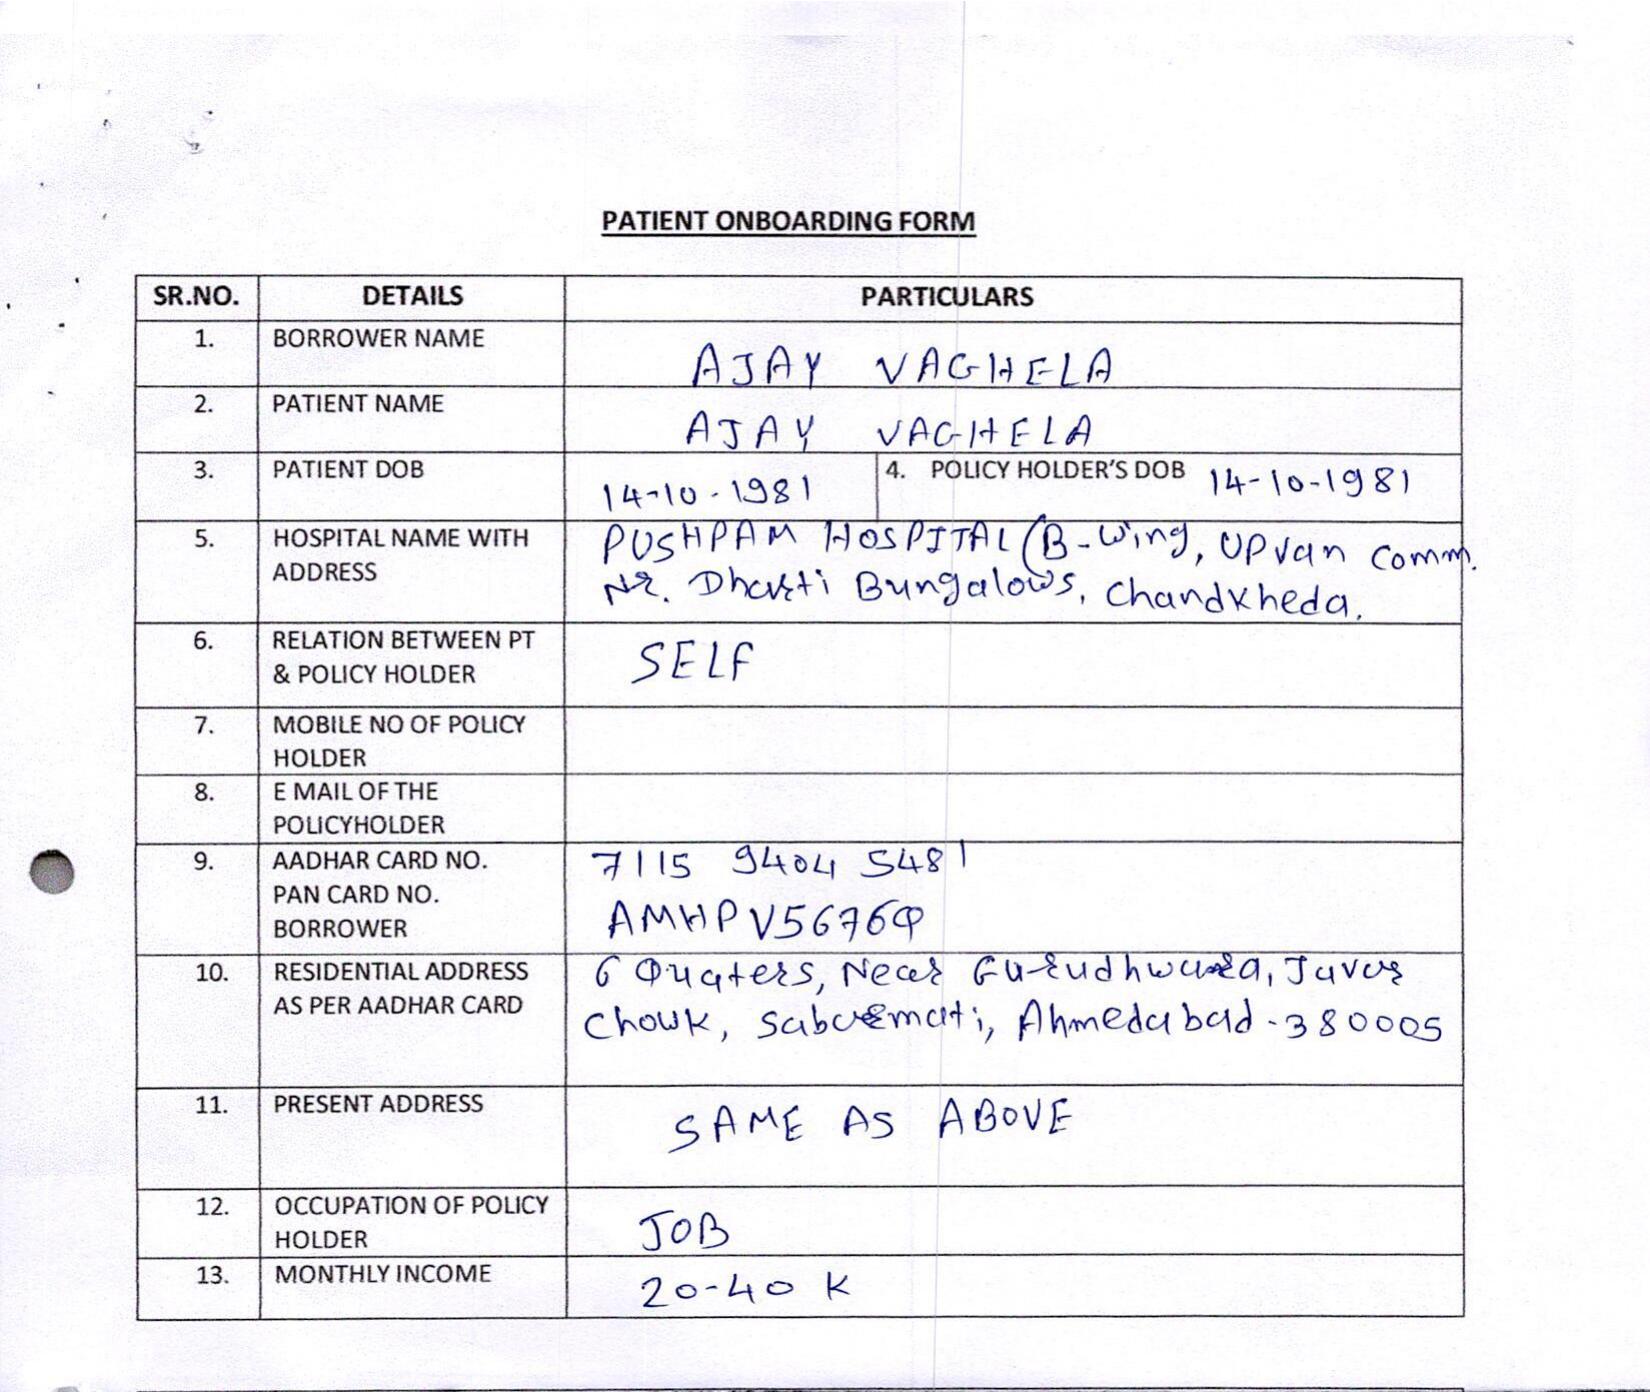 PATIENT ONBOARDING FORM
SR.NO. DETAILS PARTICULARS
1. BORROWER NAME AJAY VAGHELA
2. PATIENT NAME AJAY VAGHELA
3. PATIENT DOB 14-10-1981 4. POLICY HOLDER'S DOB 14-10-1981
5. HOSPITAL NAME WITH PUSHPAM HOSPITAL (B-Wing, UPvan Comm.
ADDRESS Nr. Dharti Bungalows, Chandkheda.
6. RELATION BETWEEN PT SELF
& POLICY HOLDER
7. MOBILE NO OF POLICY
HOLDER
8. E MAIL OF THE
POLICYHOLDER
9. AADHAR CARD NO. 7115 9404 5481
PAN CARD NO. AMHPV5676Q
BORROWER
10. RESIDENTIAL ADDRESS 6 Quaters, Near Gurudhwara, Javar
AS PER AADHAR CARD Chowk, Sabarmati, Ahmedabad-380005
11. PRESENT ADDRESS SAME AS ABOVE
12. OCCUPATION OF POLICY JOB
HOLDER
13. MONTHLY INCOME 20-40 K